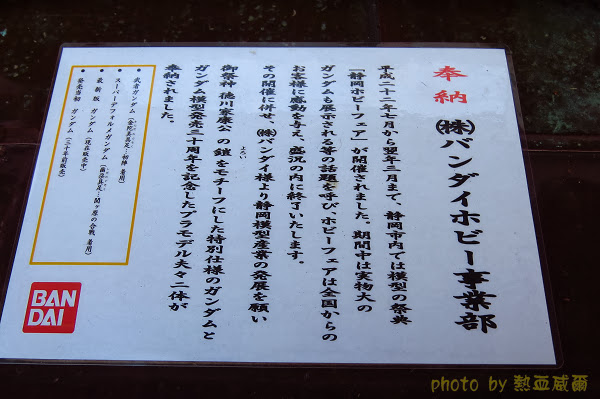 奉納
㈱バンダイホビー事業部
平成二十二年七月から翌年三月まで、静岡市内では模型の祭典
「静岡ホビーフェア」が開催されました。期間中は実物大の
ガンダムも展示される等の話題を呼び、ホビーフェアは全国からの
お客様に感動を与え、盛況の内に終了いたします。
その開催に併せ、㈱バンダイ様より静岡模型産業の発展を願い
御祭神 徳川家康公の鎧をモチーフにした特別仕様のガンダムと
よろい
ガンダム模型発売三十周年を記念したプラモデル夫々二体が
奉納されました。
武者ガンダム
スーパーデフォルメガンダム
最新版 ガンダム(現在販売中)
発売当初 ガンダム(三十年前販売)
BAN
DAI
photo by 熱血威爾